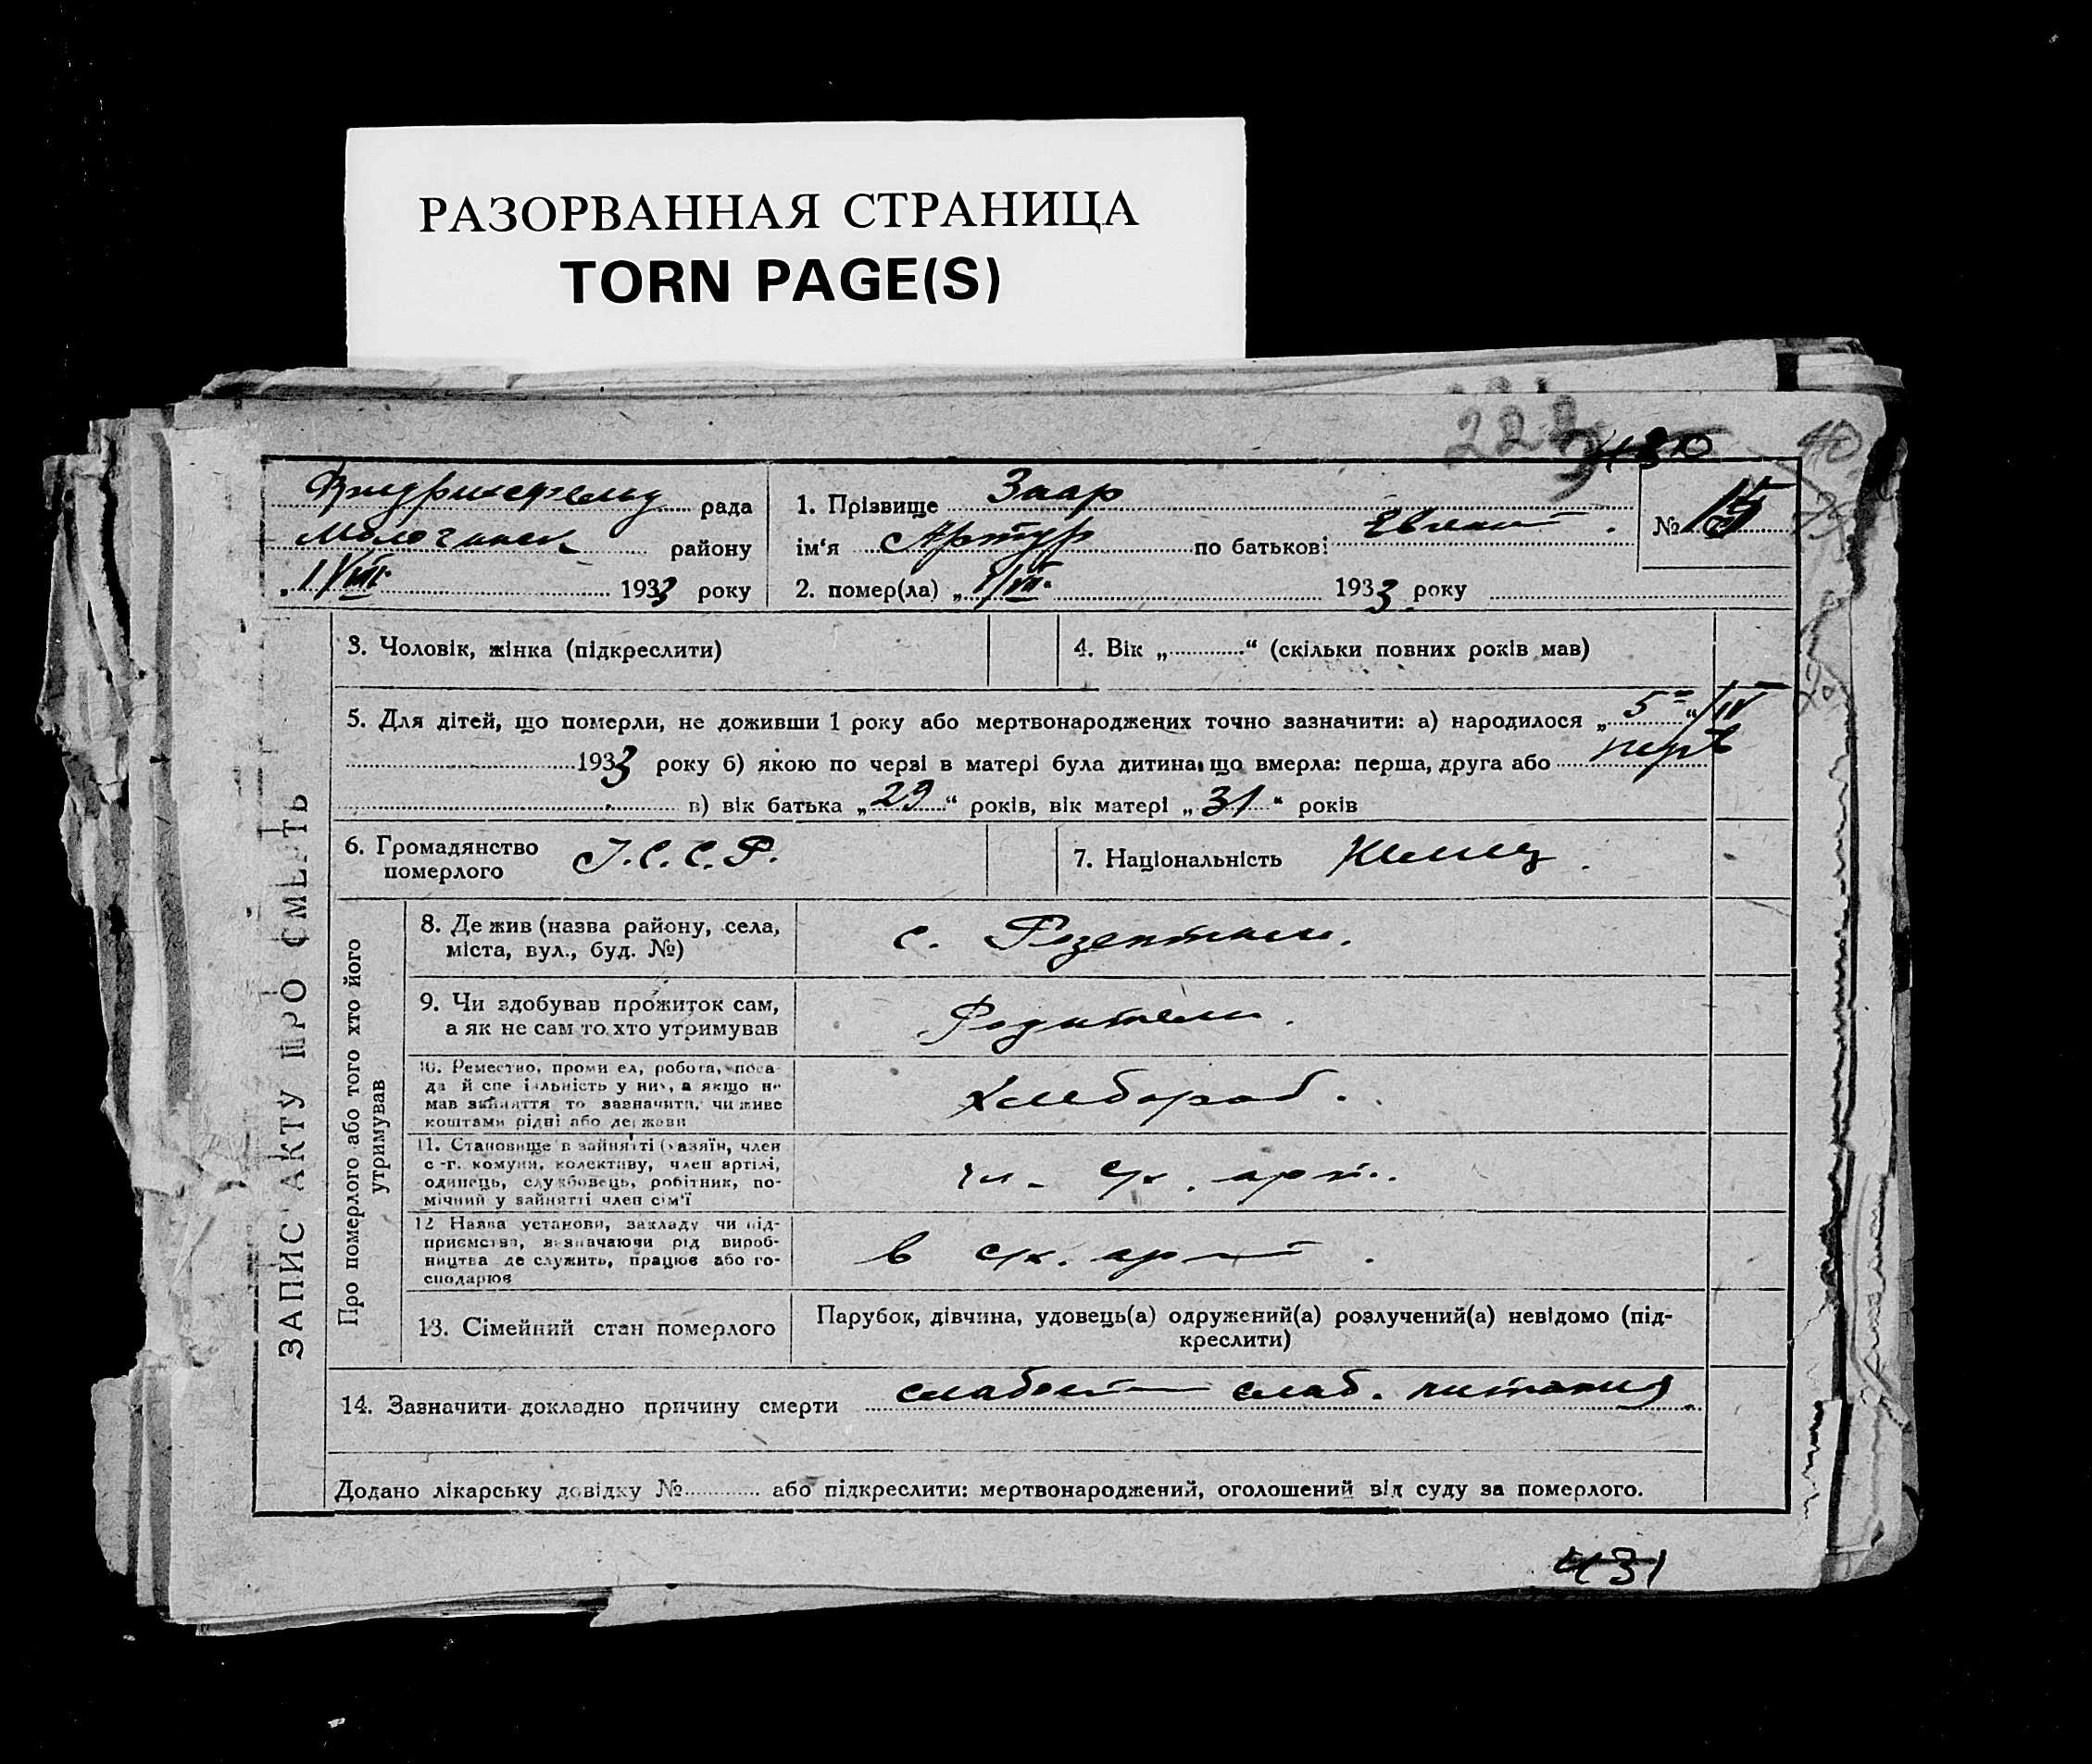 РАЗОРВАННАЯ СТРАНИЦА
TORN PAGE(S)
222
430
40
рада
1. Прізвище Заар
№ 15
району
ім‘я Артур по батькові
„1/VIII 1933 року
2. помер(ла) „1/VII 1933 року
ЗАПИС АКТУ ПРО СМЕРТЬ
3. Чоловік, жінка (підкреслити)
4. Вік „ “ (скільки повних років мав)
5. Для дітей, що померли, не доживши 1 року або мертвонароджених точно зазначити: а) народилося „5“/IV
1933 року б) якою по черзі в матері була дитина, що вмерла: перша, друга або перв
в) вік батька „29“ років, вік матері „31“ років
6. Громадянство
померлого
У.С.С.Р.
7. Національність Немец.
Про померлого або того хто його
утримував
8. Де жив (назва району, села,
міста, вул., буд. №)
с. Розенталь.
9. Чи здобував прожиток сам,
а як не сам то хто утримував
Родители.
10. Ремество, промисел, робота, поса-
да й спеціяльність у них, а якщо не
мав зайняття то зазначити, чи живе
коштами рідні або держави
Хлебороб.
11. Становище в зайнятті (хазяїн, член
с.-г. комуни, колективу, член артілі,
одинець, службовець, робітник, по-
мічний у зайнятті член сім‘ї
чл. с/х. арт.
12 Назва установи, закладу чи під-
приємства, зазначаючи рід вироб-
ництва де служить, працює або го-
сподарює
в с/х. арт.
13. Сімейний стан померлого
Парубок, дівчина, удовець(а) одружений(а) розлучений(а) невідомо (під-
креслити)
14. Зазначити докладно причину смерти слабость слаб. питания.
Додано лікарську довідку № або підкреслити: мертвонароджений, оголошений від суду за померлого.
431